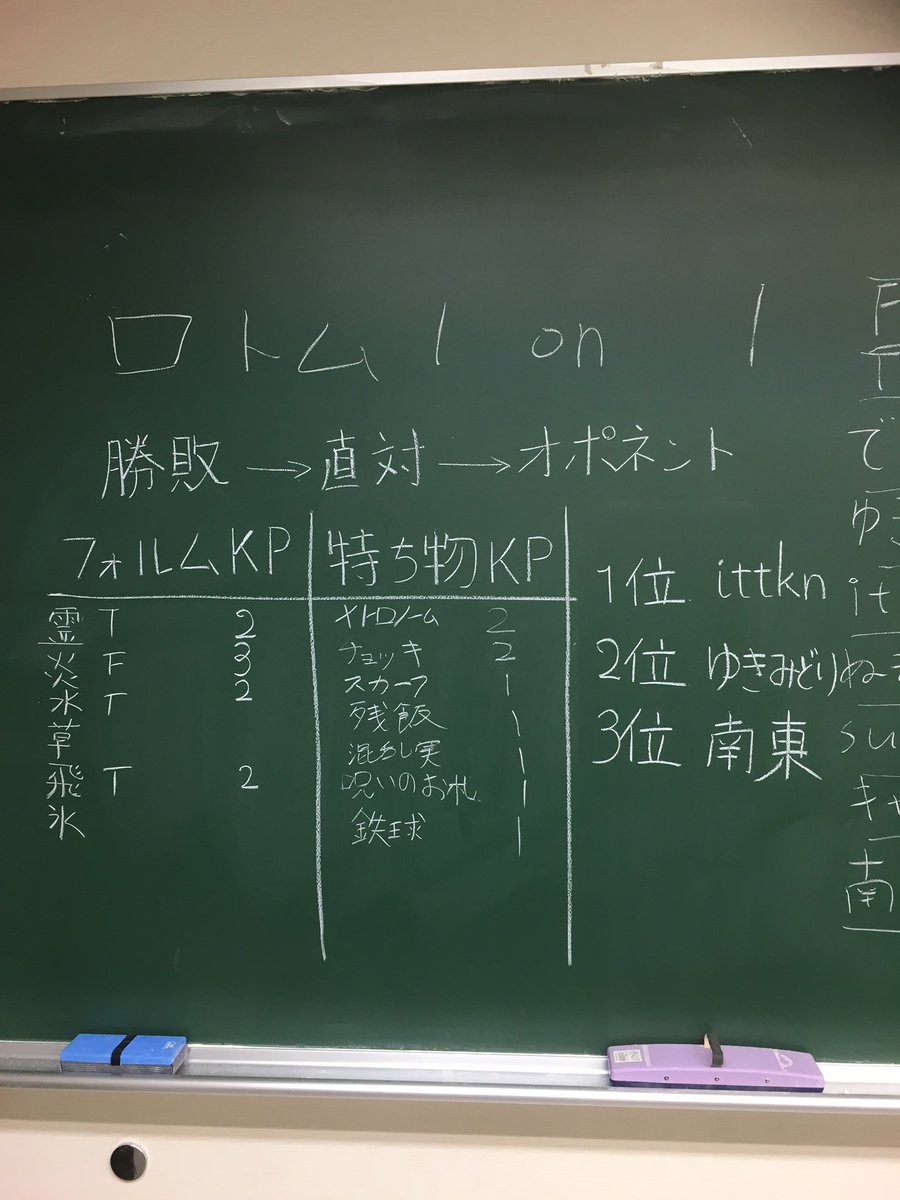 ロトム 1 on 1
勝敗→直対→オポネント
フォルムKP
霊 T 2
炎 F 3
水 T 2
草
飛 T 2
氷
持ち物KP
メトロノーム 2
チョッキ 2
スカーフ 1
残飯 1
混乱実 1
呪いのお札 1
鉄球 1
1位 ittkn
2位 ゆきみどり
3位 南東
で
ゆき
it
ぬき
su
キャ
南